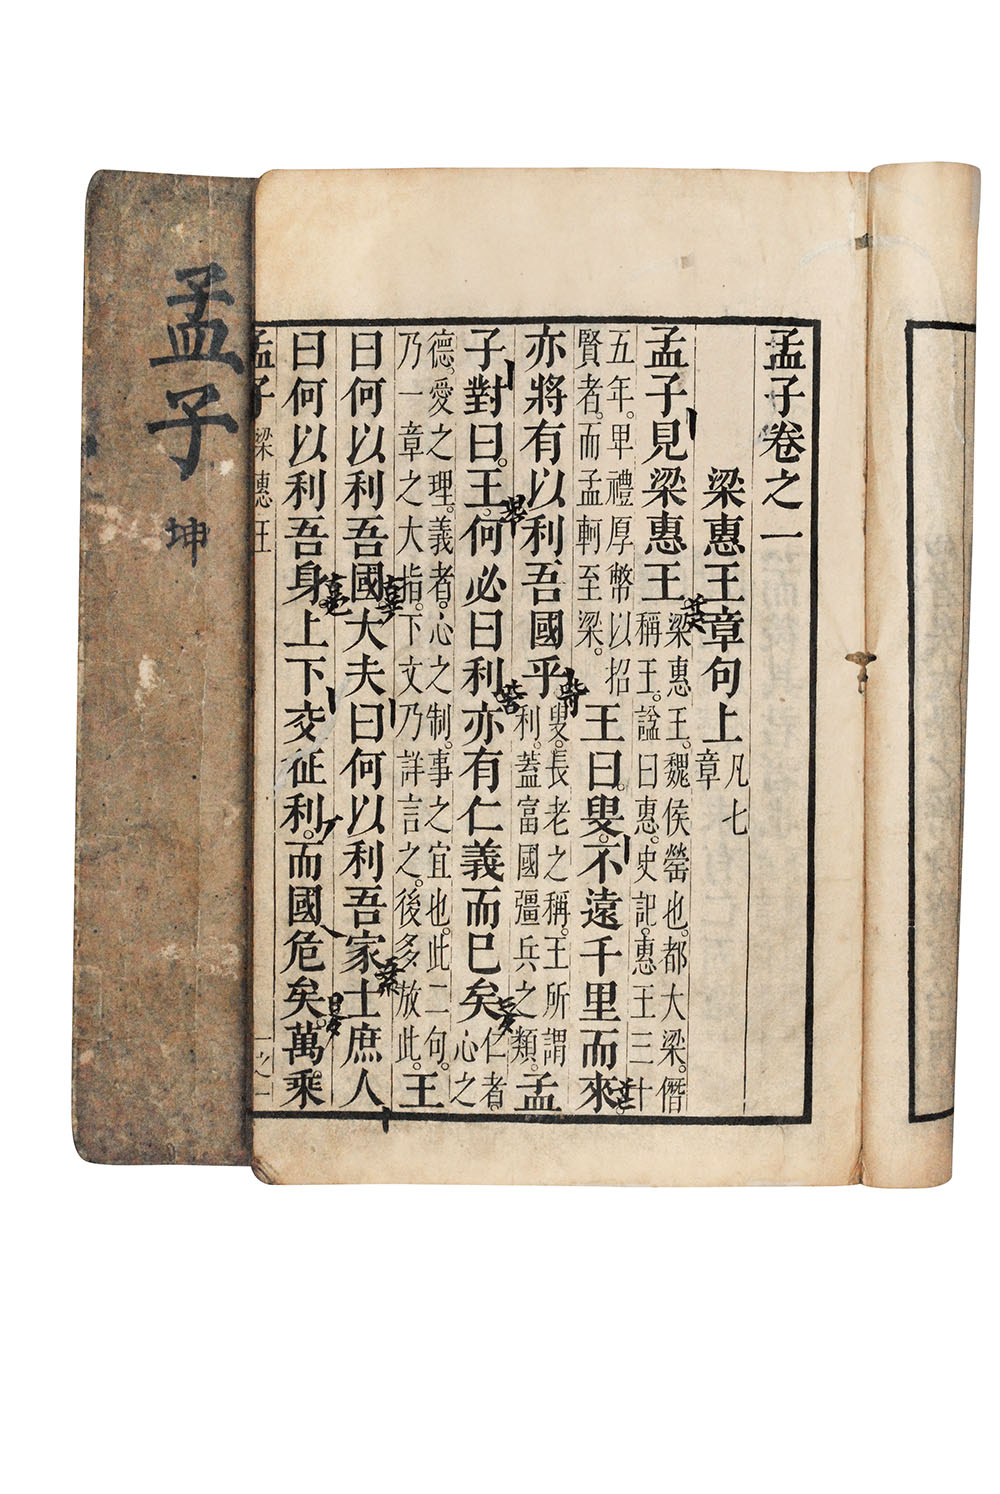 孟子卷之一
梁惠王章句上凡七章
孟子見梁惠王梁惠王。魏侯罃也。都大梁。僭稱王。謚曰惠。史記。惠王三十
五年。卑禮厚幣以招賢者。而孟軻至梁。王曰。叟。不遠千里而來。
亦將有以利吾國乎。叟。長老之稱。王所謂利。蓋富國彊兵之類。孟
子對曰。王。何必曰利。亦有仁義而已矣。仁者。心之
德。愛之理。義者。心之制。事之宜也。此二句。乃一章之大指。下文乃詳言之。後多放此。王
曰何以利吾國大夫曰何以利吾家士庶人
曰何以利吾身上下交征利。而國危矣。萬乘。
孟子 梁惠王 一之一
孟子
坤